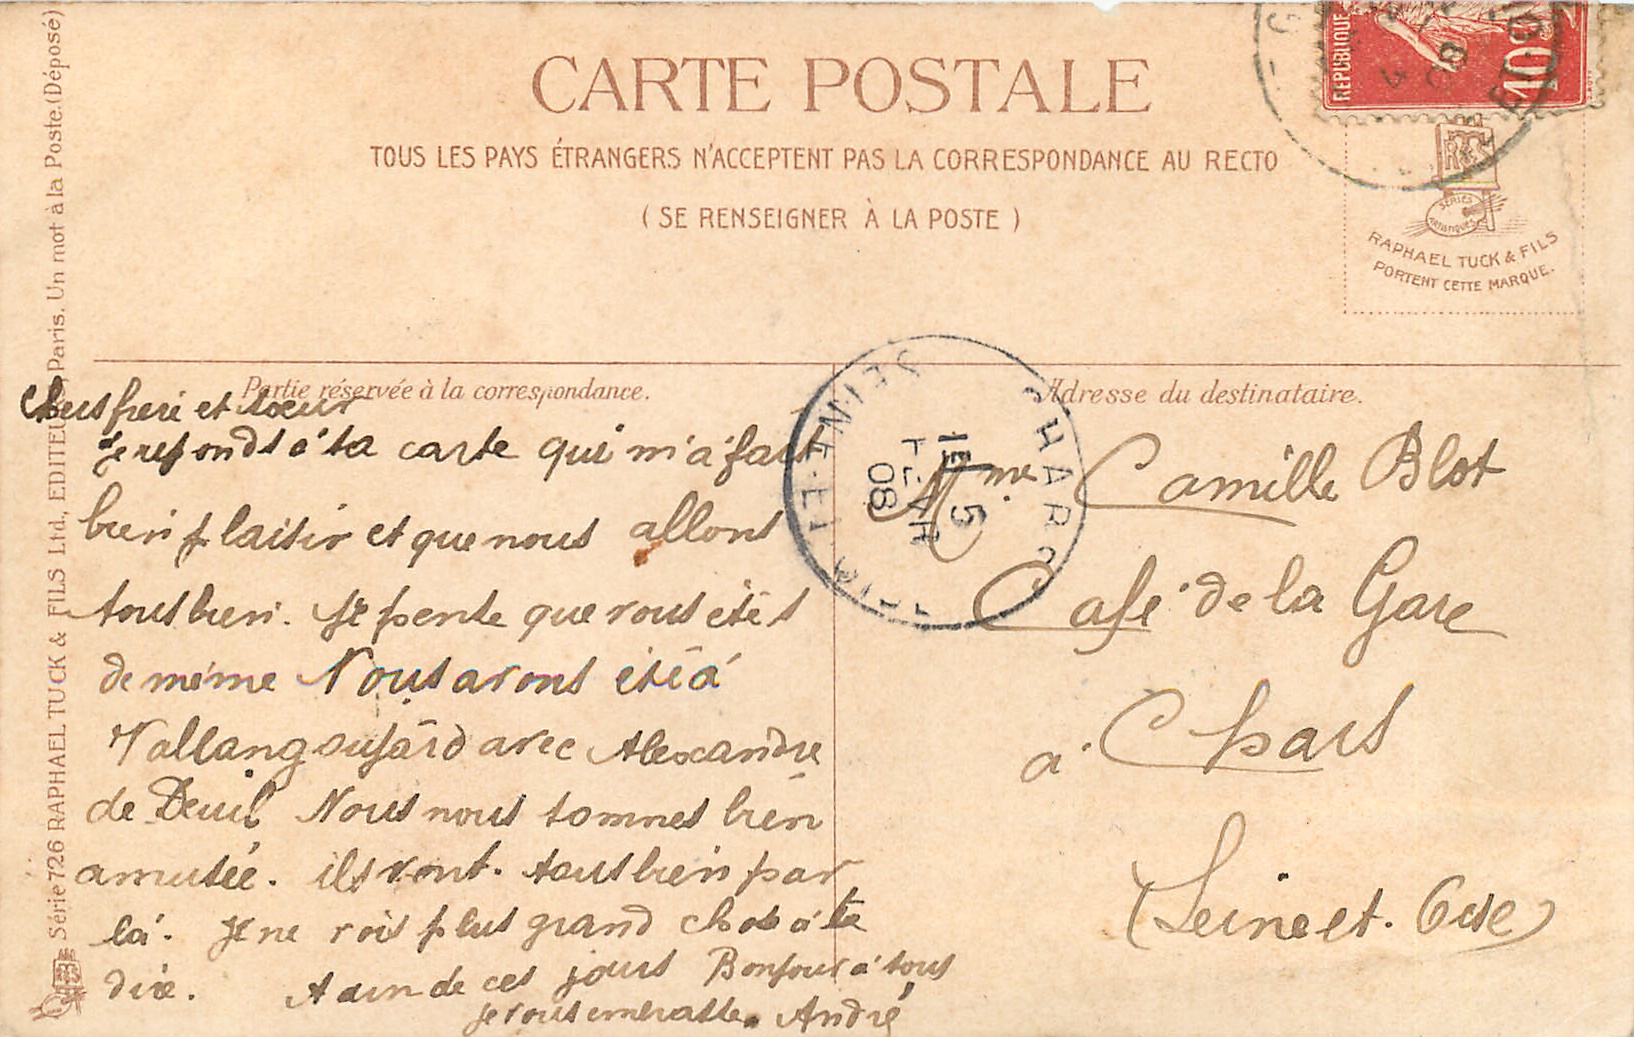 CARTE POSTALE
TOUS LES PAYS ÉTRANGERS N'ACCEPTENT PAS LA CORRESPONDANCE AU RECTO
( SE RENSEIGNER À LA POSTE )
REPUBLIQUE
10
08
SERIES
ARTISTIQUES
RAPHAEL TUCK & FILS
PORTENT CETTE MARQUE.
Série 726 RAPHAEL TUCK & FILS Ltd., EDITEURS, Paris. Un mot à la Poste. (Déposé)
Partie réservée à la correspondance.
Chers frere et soeur
je repond à ta carte qui m'a fait
bien plaisir et que nous allons
tous bien. Je pense que vous étés
de même Nous avons été à
Vallangoujard avec Alexandre
de Deuil Nous nous sommes bien
amusée. ils vont. tous bien par
là. Je ne vois plus grand chose à te
dire. A un de ces jours Bonjour à tous
je vous embrasse. André
CHARS
SEINE-ET-OISE
5
08
Adresse du destinataire.
Mme Camille Blot
Café de la Gare
à Chars
(Seine et. Oise)